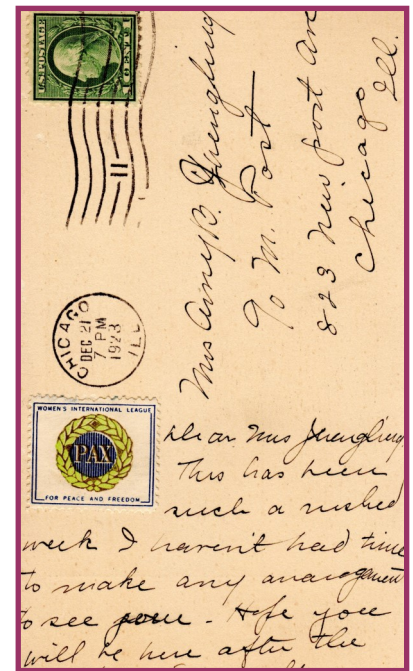 U.S. POSTAGE
1 CENT 1
11
CHICAGO
DEC 21
7 PM
1923
ILL
Mrs Amy B. Yuengling
% M. Post
823 New port Ave
Chicago
Ill.
WOMEN'S INTERNATIONAL LEAGUE
PAX
FOR PEACE AND FREEDOM
Dear Mrs Yuengling
This has been
such a rushed
week I haven't had time
to make any arrangement
to see you - Hope you
will be here after the